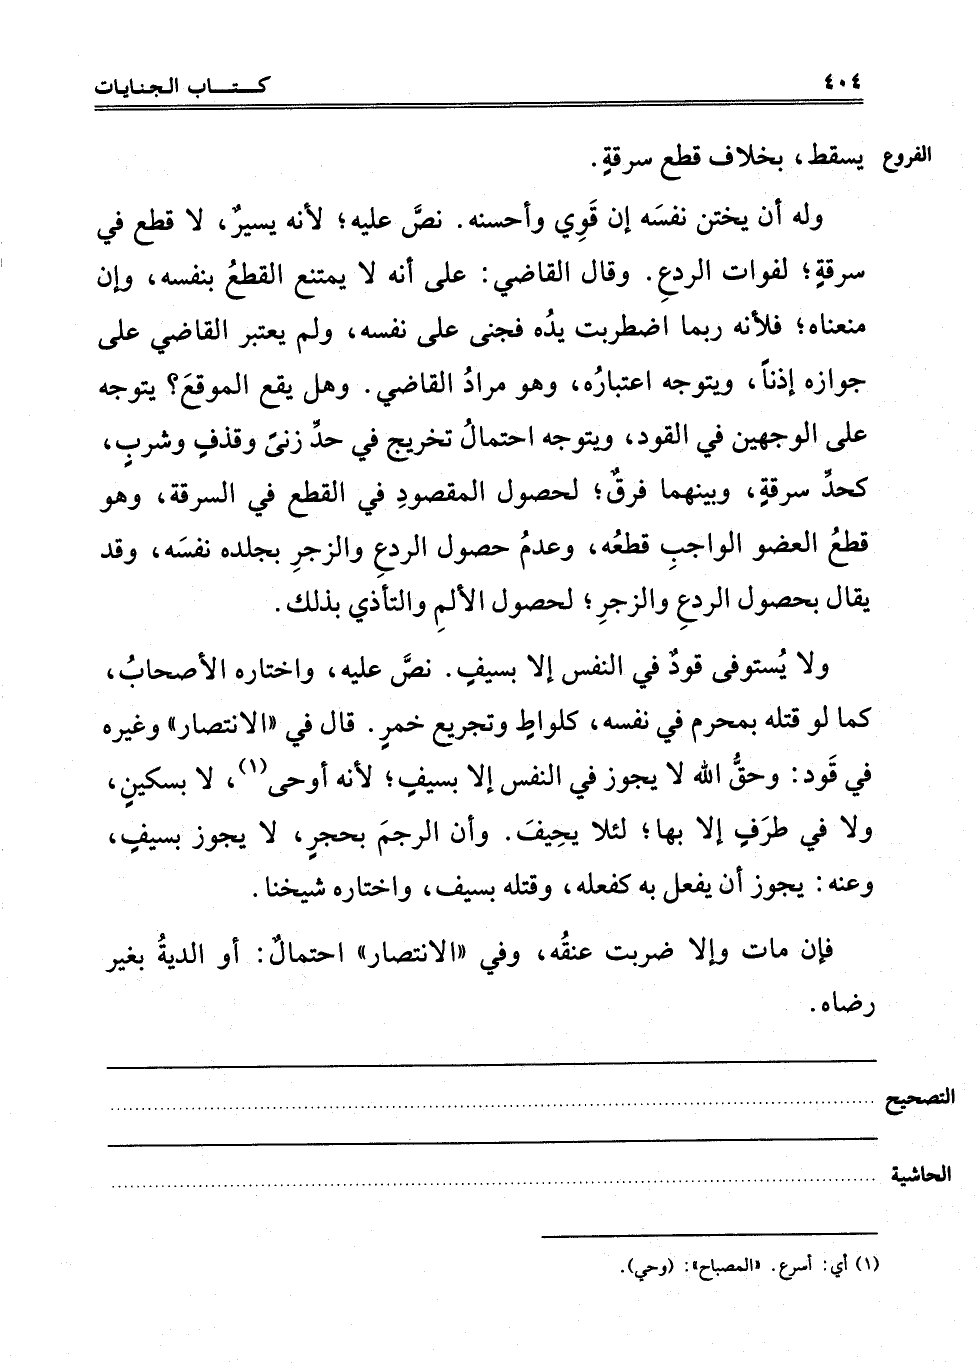 ٤٠٤ كتاب الجنايات
الفروع يسقط، بخلاف قطع سرقةٍ.
وله أن يختن نفسَه إن قَوِي وأحسنه. نصَّ عليه؛ لأنه يسيرٌ، لا قطع في
سرقةٍ؛ لفوات الردعِ. وقال القاضي: على أنه لا يمتنع القطعُ بنفسه، وإن
منعناه؛ فلأنه ربما اضطربت يدُه فجنى على نفسه، ولم يعتبر القاضي على
جوازه إذناً، ويتوجه اعتبارُه، وهو مرادُ القاضي. وهل يقع الموقعَ؟ يتوجه
على الوجهين في القود، ويتوجه احتمالُ تخريج في حدِّ زنىً وقذفٍ وشربٍ،
كحدِّ سرقةٍ، وبينهما فرقٌ؛ لحصول المقصودِ في القطع في السرقة، وهو
قطعُ العضو الواجبِ قطعُه، وعدمُ حصول الردعِ والزجرِ بجلده نفسَه، وقد
يقال بحصول الردعِ والزجرِ؛ لحصول الألمِ والتأذي بذلك.
ولا يُستوفى قودٌ في النفس إلا بسيفٍ. نصَّ عليه، واختاره الأصحابُ،
كما لو قتله بمحرم في نفسه، كلواطٍ وتجريع خمرٍ. قال في «الانتصار» وغيره
في قَود: وحقُّ الله لا يجوز في النفس إلا بسيفٍ؛ لأنه أوحى(١)، لا بسكينٍ،
ولا في طرَفٍ إلا بها؛ لئلا يحِيفَ. وأن الرجمَ بحجرٍ، لا يجوز بسيفٍ،
وعنه: يجوز أن يفعل به كفعله، وقتله بسيف، واختاره شيخنا.
فإن مات وإلا ضربت عنقُه، وفي «الانتصار» احتمالٌ: أو الديةُ بغير
رضاه.
التصحيح
الحاشية
(١) أي: أسرع. «المصباح»: (وحي).